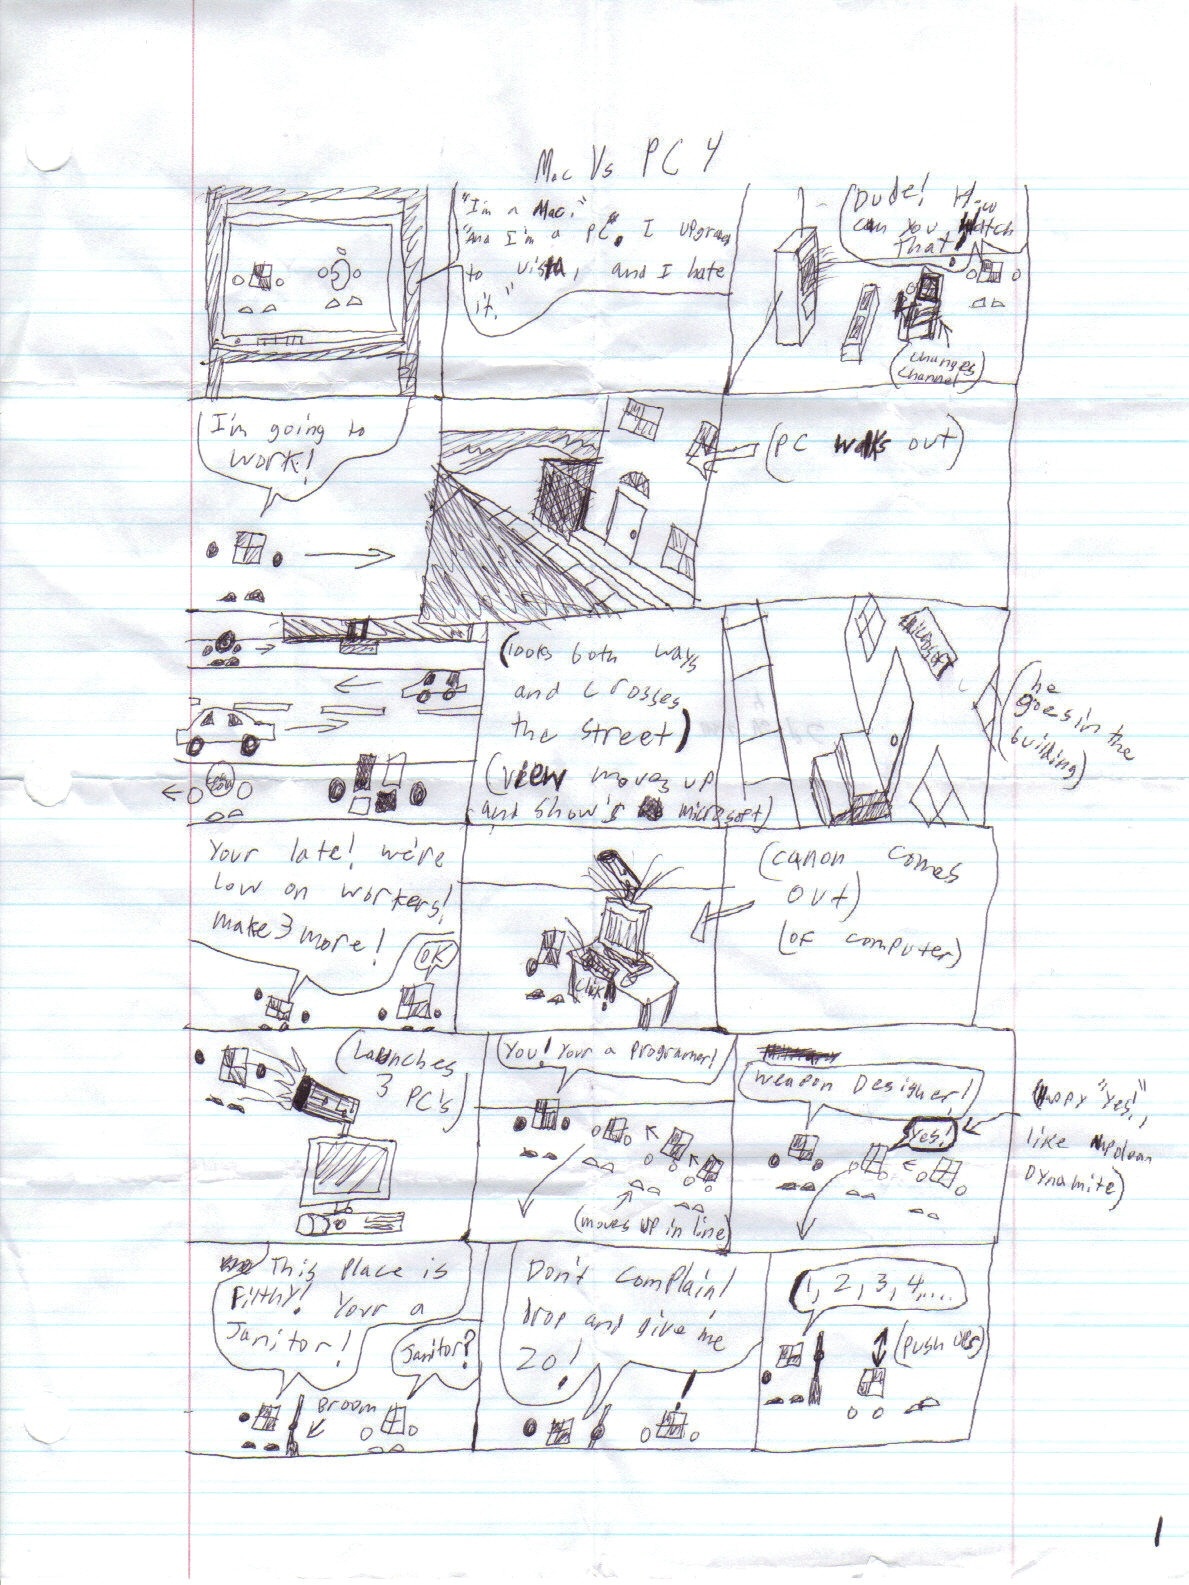 Mac Vs PC 4
"I'm a Mac."
"And I'm a PC". I upgrade
to vista, and I hate
it."
Dude! How
can you watch
that!
(changes
channel)
I'm going to
work!
(PC walks out)
(looks both ways
and crosses
the street)
(view moves up
and show's microsoft)
MICROSOFT
(he
goes in the
building)
Your late! we're
low on workers!
make 3 more!
OK
click!
(canon comes
out)
(of computer)
(Launches
3 PC's)
You! Your a programer!
(moves up in line)
Weapon Designer!
Yes!
"Yes!",
like Npolean
Dynamite)
This place is
Filthy! Your a
Janitor!
Janitor?
Broom
Don't complain!
Drop and give me
20!
!
1, 2, 3, 4,....
(push ups)
1